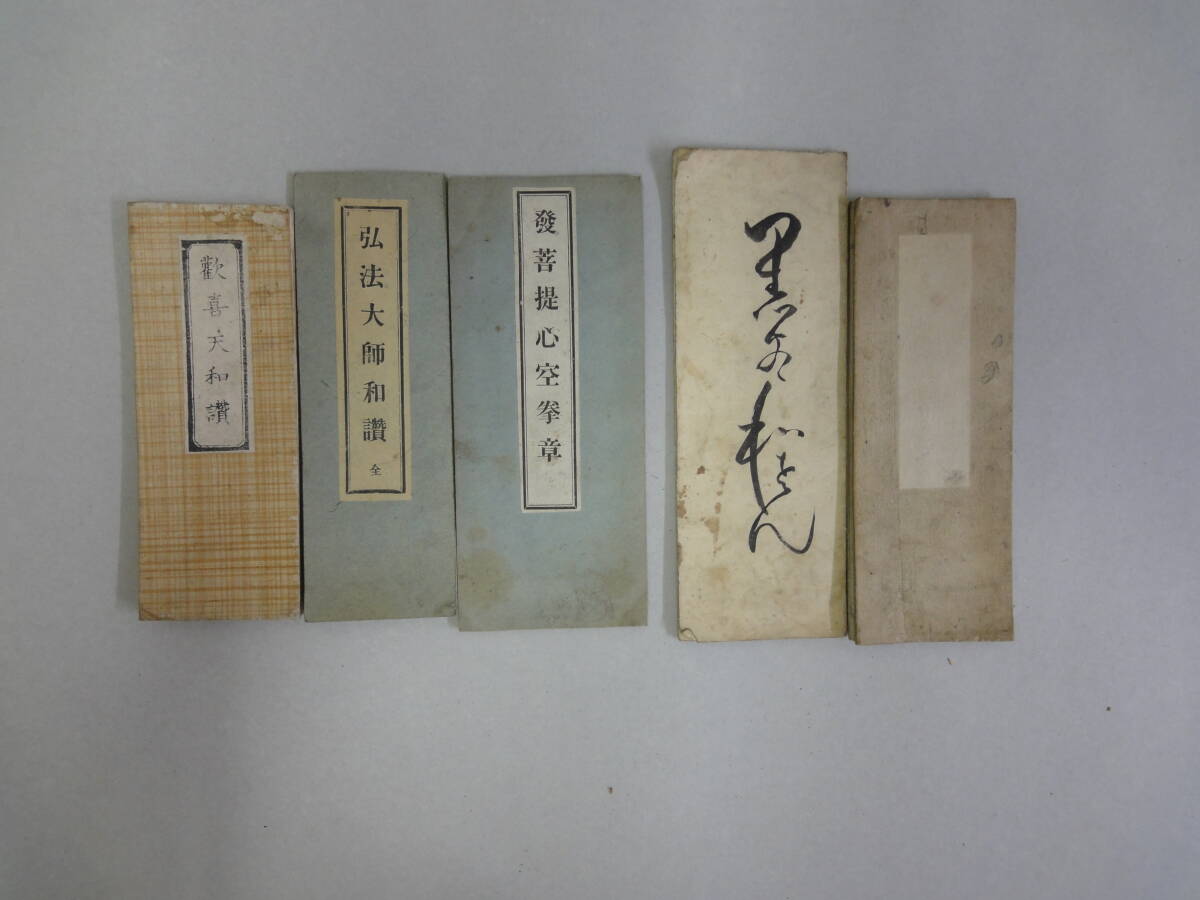 歡喜天和讚
弘法大師和讚
全
發菩提心空拳章